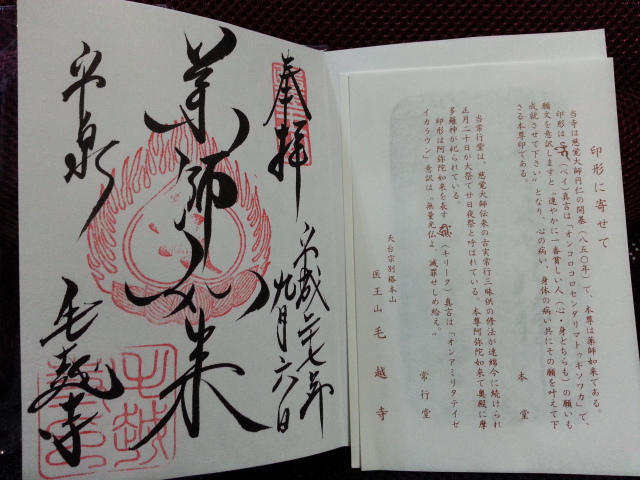 奉拝
平成二十七年
九月六日
薬師如来
平泉
毛越寺
印形に寄せて
当寺は慈覚大師円仁の開基(八五〇年)で、本尊は薬師如来である。
印形は(ベイ)真言は「オンコロコロセンダリマトウギソワカ」で、
願文を意訳しますと〝速やかに一番貧しい人(心・身どちらも)の願いも
成就させて下さい〟となり、心の病い、身体の病い共にその願を叶えて下
さる本尊印である。
本堂
当常行堂は、慈覚大師伝来の古実常行三味供の修法が連綿今に続けられ
正月二十日が大祭で廿日夜祭と呼ばれている。本尊阿弥陀如来で奥殿に摩
多羅神が祀られている。
印形は阿弥陀如来を表す(キリーク)真言は「オンアミリタテイゼ
イカラウン」意訳は〝無量光仏よ、滅罪せしめ給え。〟
常行堂
天台宗別格本山
医王山毛越寺